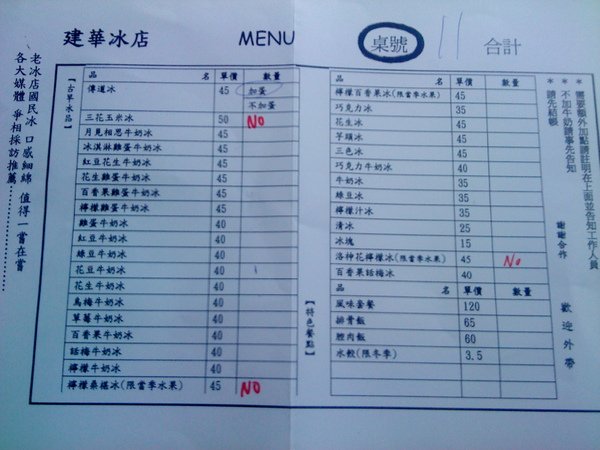 建華冰店 MENU 桌號 11 合計
老冰店國民冰 口感細綿 值得一嘗在嘗
各大媒體 爭相採訪推薦
【古早冰品】
品名 單價 數量
傳道冰 45 加蛋
不加蛋
三花玉米冰 50 NO
月見相思牛奶冰 45
冰淇淋雞蛋牛奶冰 45
紅豆花生牛奶冰 45
花生雞蛋牛奶冰 45
百香果雞蛋牛奶冰 45
檸檬雞蛋牛奶冰 45
雞蛋牛奶冰 40
紅豆牛奶冰 40
綠豆牛奶冰 40
花豆牛奶冰 40
花生牛奶冰 40
烏梅牛奶冰 40
草莓牛奶冰 40
百香果牛奶冰 40
話梅牛奶冰 40
檸檬牛奶冰 40
檸檬桑椹冰(限當季水果) 45 NO
檸檬百香果冰(限當季水果) 45
巧克力冰 35
花生冰 35
芋頭冰 35
三色冰 35
巧克力牛奶冰 40
牛奶冰 35
綠豆冰 35
檸檬汁冰 35
清冰 25
冰塊 15
洛神花檸檬冰(限當季水果) 45 No
百香果話梅冰 40
【特色餐點】
品名 單價 數量
風味套餐 120
排骨飯 65
腔肉飯 60
水餃(限冬季) 3.5
* 需要額外加點請註明在上面並告知工作人員
* 不加牛奶請事先告知
* 請先結帳
謝謝合作
歡迎外帶